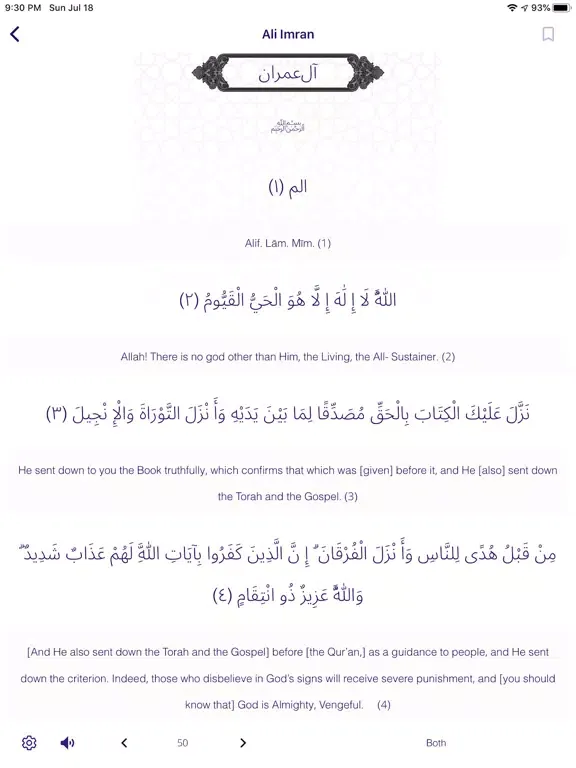 9:30 PM Sun Jul 18 93%
Ali Imran
آل‌عمران
﷽
الم (١)
Alif. Lām. Mīm. (1)
اللَّهُ لَا إِلَٰهَ إِلَّا هُوَ الْحَيُّ الْقَيُّومُ (٢)
Allah! There is no god other than Him, the Living, the All- Sustainer. (2)
نَزَّلَ عَلَيْكَ الْكِتَابَ بِالْحَقِّ مُصَدِّقًا لِمَا بَيْنَ يَدَيْهِ وَأَنْزَلَ التَّوْرَاةَ وَالْإِنْجِيلَ (٣)
He sent down to you the Book truthfully, which confirms that which was [given] before it, and He [also] sent down
the Torah and the Gospel. (3)
مِنْ قَبْلُ هُدًى لِلنَّاسِ وَأَنْزَلَ الْفُرْقَانَ ۗ إِنَّ الَّذِينَ كَفَرُوا بِآيَاتِ اللَّهِ لَهُمْ عَذَابٌ شَدِيدٌ ۗ
وَاللَّهُ عَزِيزٌ ذُو انْتِقَامٍ (٤)
[And He also sent down the Torah and the Gospel] before [the Qur’an,] as a guidance to people, and He sent
down the criterion. Indeed, those who disbelieve in God’s signs will receive severe punishment, and [you should
know that] God is Almighty, Vengeful. (4)
50 Both